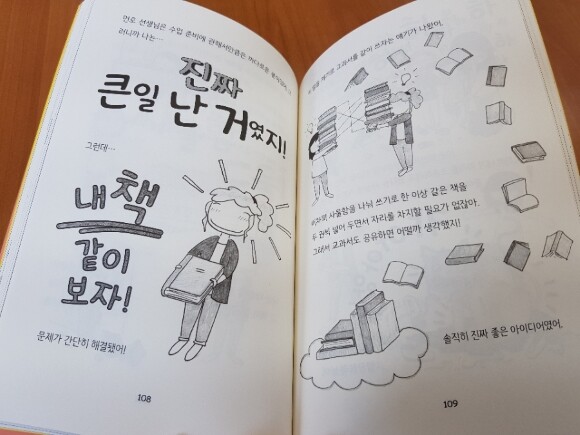 안호 선생님은 수업 준비에 관해서만큼은
러니까 나는…
진짜
큰일 난 거였지!
그런데…
내 책
같이
보자!
문제가 간단히 해결됐어!
108
교과서를 같이 쓰자는 얘기가 나왔어.
사물함을 나눠 쓰기로 한 이상 같은 책을
두 권씩 넣어 두면서 자리를 차지할 필요가 없잖아.
그래서 교과서도 공유하면 어떨까 생각했지!
솔직히 진짜 좋은 아이디어였어.
109